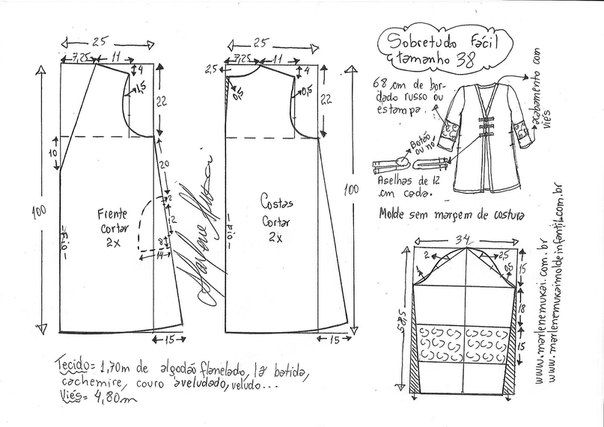 Sobretudo Fácil
tamanho 38
25
7,25 11
4
1,5
22
10
100
20
2
12
2
8
14
15
Frente
cortar
2x
Fio
Marlene Mukai
25
2,5
7,25 11
4
0,5
0,5
22
100
Costas
Cortar
2x
Fio
15
68 cm de bor-
dado russo ou
estampa.
Botão
ou nó
Acabamento com
viés
Aselhas de 12
cm cada.
Molde sem margem de costura
34
2
2,5
0,5
15
18
15
58,5
www.marlenemukai.com.br
www.marlenemukaimoldeinfantil.com.br
Tecido= 1,70m de algodão flanelado, lã batida,
cachemire, couro aveludado, veludo...
Viés= 4,80m